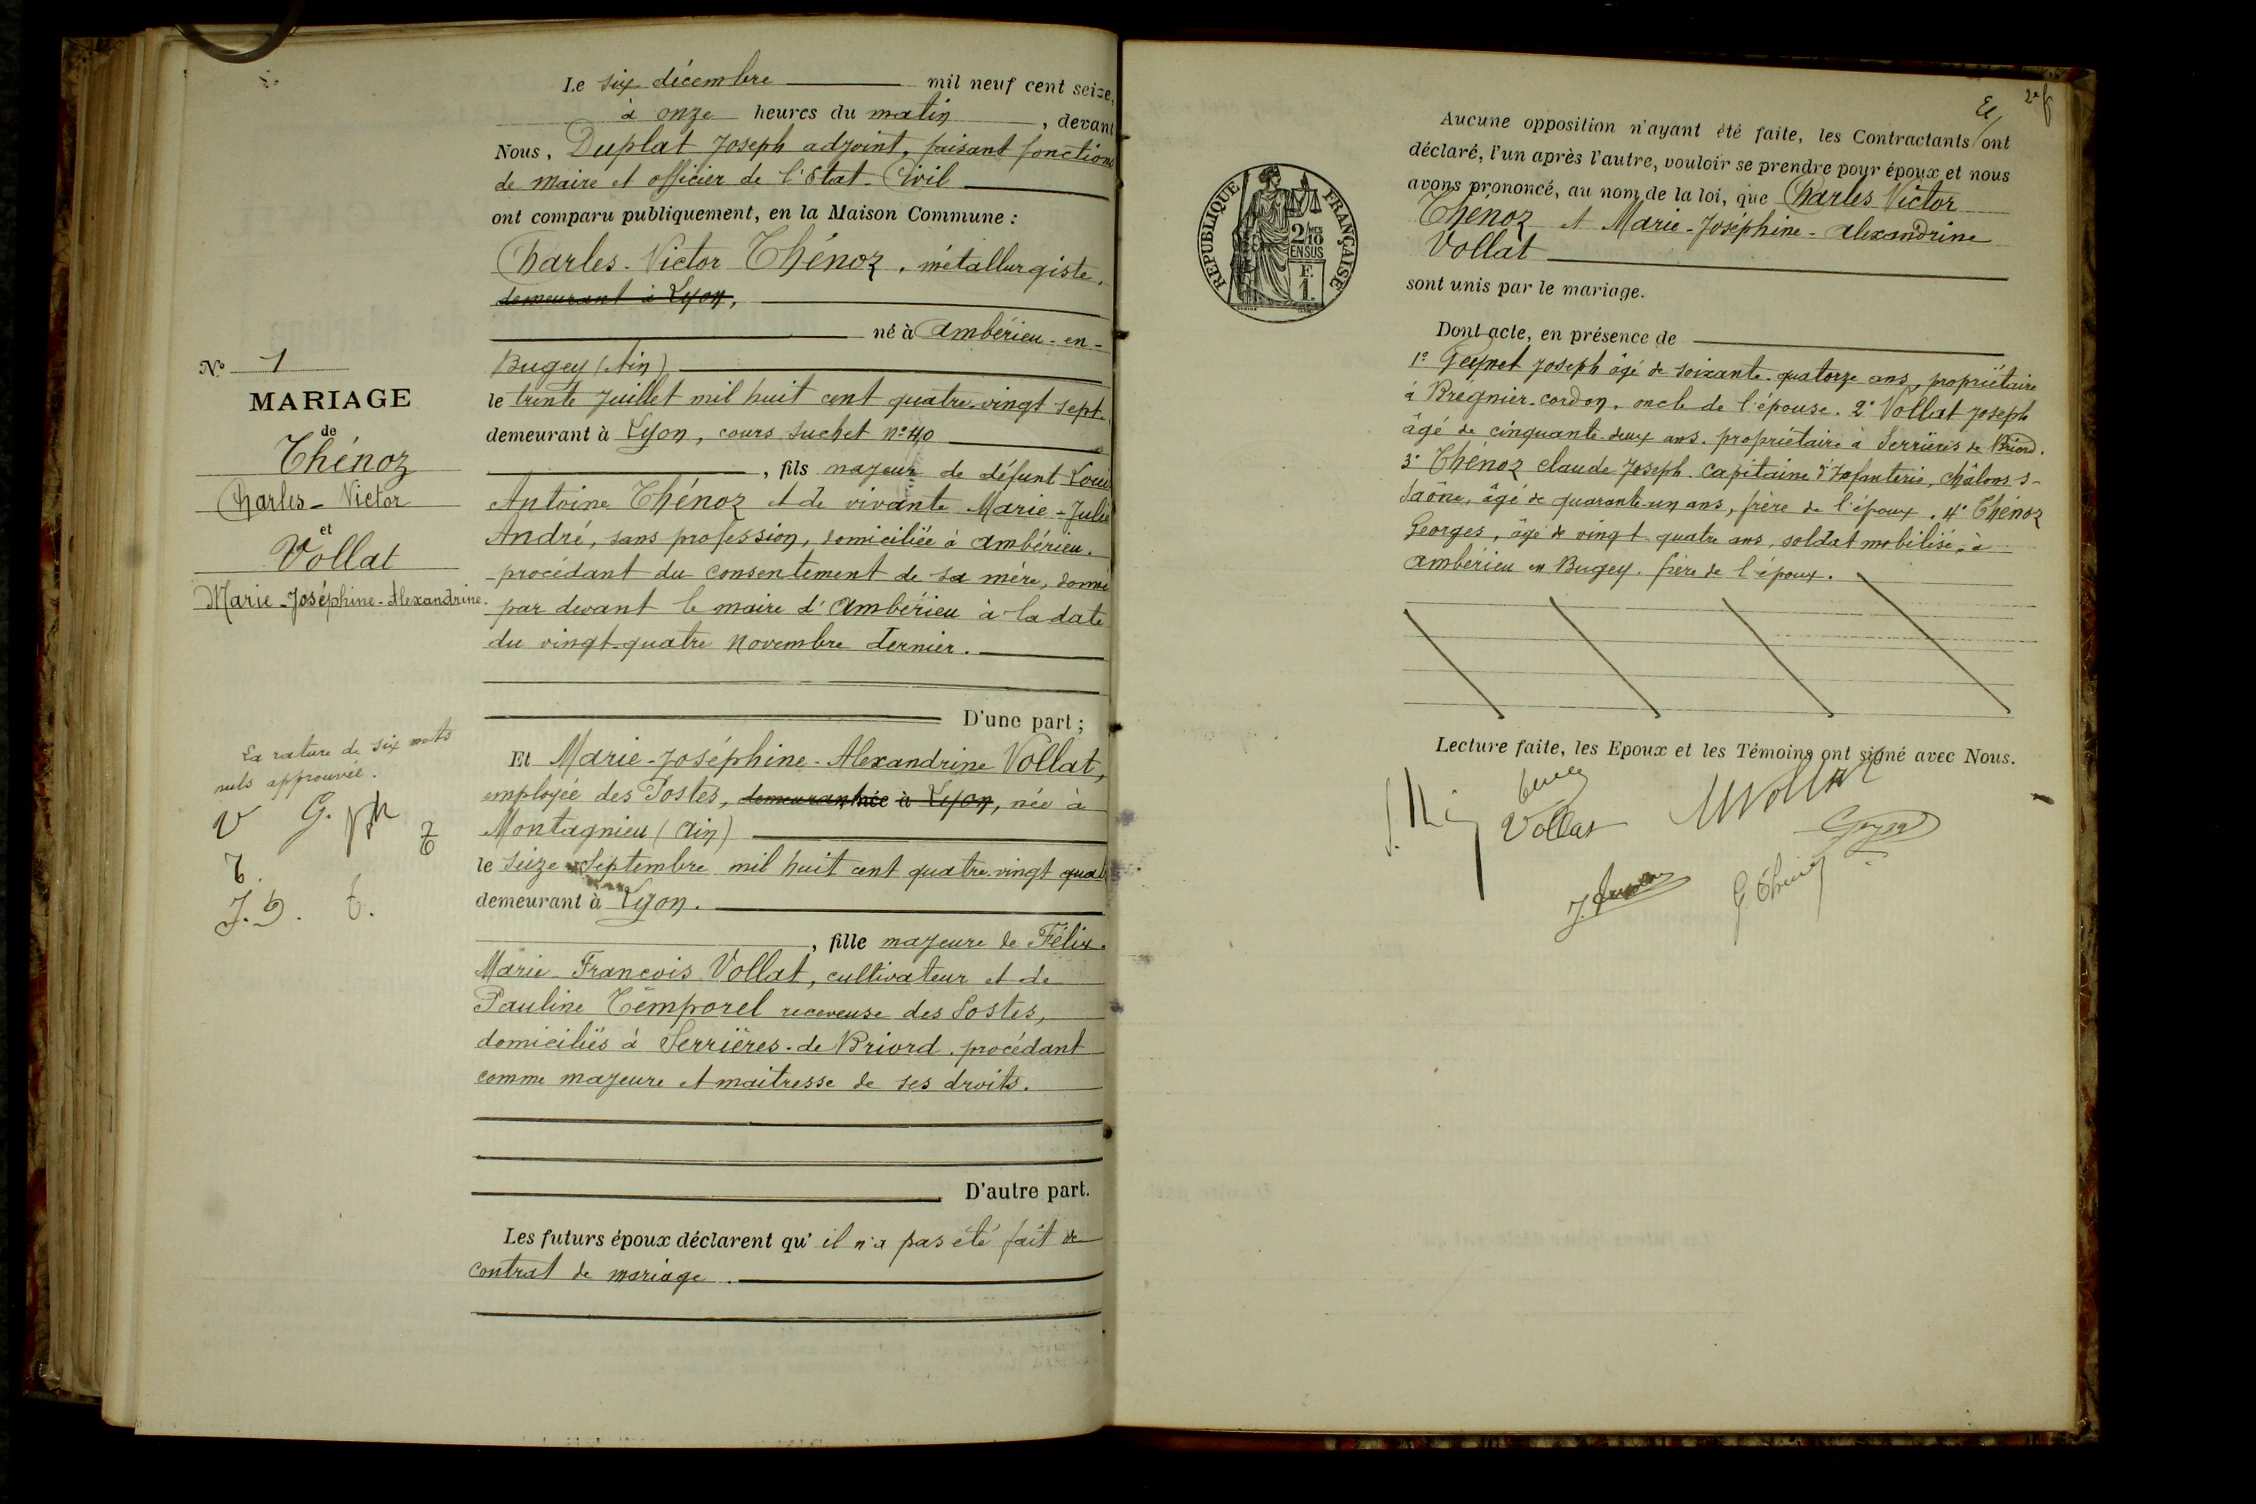 N° 1
MARIAGE
de
Thénoz
Charles - Victor
et
Vollat
Marie - Joséphine - Alexandrine.
La rature de six mots
nuls approuvée.
V G.
T.
J. D. T.
Le six décembre mil neuf cent seize,
à onze heures du matin, devant
Nous, Duplat Joseph adjoint, faisant fonctions
de maire et officier de l'Etat-Civil
ont comparu publiquement, en la Maison Commune :
Charles-Victor Thénoz, métallurgiste,
demeurant à Lyon,
né à Ambérieu-en-
Bugey (Ain)
le trente Juillet mil huit cent quatre-vingt sept
demeurant à Lyon, cours Suchet n° 40
, fils majeur de défunt Louis
Antoine Thénoz et de vivante Marie-Julie
André, sans profession, domiciliée à Ambérieu.
procédant du consentement de sa mère, donné
par devant le maire d'Ambérieu à la date
du vingt-quatre Novembre dernier.
D'une part ;
Et Marie-Joséphine-Alexandrine Vollat,
employée des Postes, demeurant à Lyon, née à
Montagnieu (Ain)
le seize Septembre mil huit cent quatre-vingt quat
demeurant à Lyon.
, fille majeure de Félix-
Marie-François Vollat, cultivateur et de
Pauline Temporel receveuse des Postes,
domiciliés à Serrières-de-Briord. procédant
comme majeure et maitresse de ses droits.
D'autre part.
Les futurs époux déclarent qu'il n'a pas été fait de
contrat de mariage.
2e f
Aucune opposition n'ayant été faite, les Contractants ont
déclaré, l'un après l'autre, vouloir se prendre pour époux et nous
avons prononcé, au nom de la loi, que Charles Victor
Thénoz et Marie-Joséphine-Alexandrine
Vollat
sont unis par le mariage.
RÉPUBLIQUE FRANÇAISE
2/10 EN SUS
F. 1.
Dont acte, en présence de
1° Geynet Joseph âgé de soixante-quatorze ans, propriétaire
à Brégnier-Cordon, oncle de l'épouse. 2° Vollat Joseph
âgé de cinquante-deux ans. propriétaire à Serrières de Briord.
3° Thenoz Claude Joseph. Capitaine d'Infanterie, Châlons-s-
Saône, âgé de quarante-un ans, frère de l'époux. 4° Thénoz
Georges, âgé de vingt-quatre ans, soldat mobilisé, à
Ambérieu en Bugey. frère de l'époux.
Lecture faite, les Epoux et les Témoins ont signé avec Nous.
Vollat